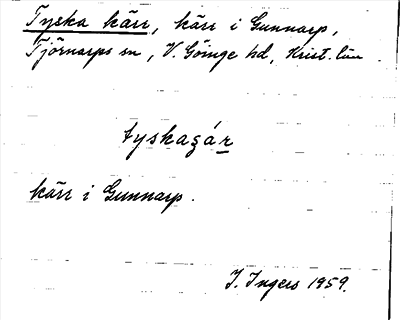 Tyska kärr, kärr i Gunnarp,
Tjörnarps sn, V. Göinge hd, Krist. län
tyskagár
kärr i Gunnarp.
I. Ingers 1959.